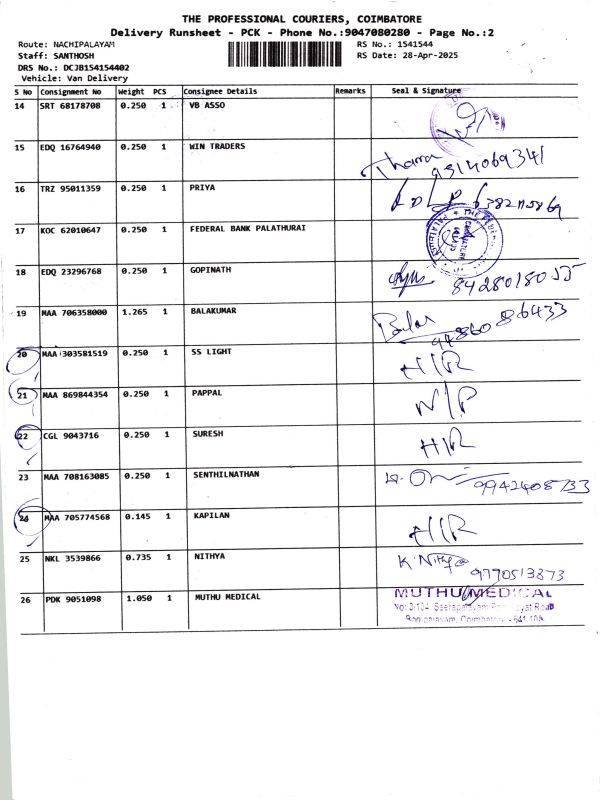 THE PROFESSIONAL COURIERS, COIMBATORE
Delivery Runsheet - PCK - Phone No.:9047080280 - Page No.:2
Route: NACHIPALAYAM RS No.: 1541544
Staff: SANTHOSH RS Date: 28-Apr-2025
DRS No.: DCJB154154402
Vehicle: Van Delivery
S No Consignment No Weight PCS Consignee Details Remarks Seal & Signature
14 SRT 68178708 0.250 1 VB ASSO
15 EDQ 16764940 0.250 1 WIN TRADERS Thara 9314069341
16 TRZ 95011359 0.250 1 PRIYA
17 KOC 62010647 0.250 1 FEDERAL BANK PALATHURAI
18 EDQ 23296768 0.250 1 GOPINATH 8428018055
19 MAA 706358000 1.265 1 BALAKUMAR Balar 9486086433
20 MAA 303581519 0.250 1 SS LIGHT H/R
21 MAA 869844354 0.250 1 PAPPAL N/P
22 CGL 9043716 0.250 1 SURESH H/R
23 MAA 708163085 0.250 1 SENTHILNATHAN 9942408733
24 MAA 705774568 0.145 1 KAPILAN H/R
25 NKL 3539866 0.735 1 NITHYA K.Nithya 9770513873
26 PDK 9051098 1.050 1 MUTHU MEDICAL MUTHU MEDICAL
No: 3/134, Seerapalayam Road
Coimbatore - 641 105